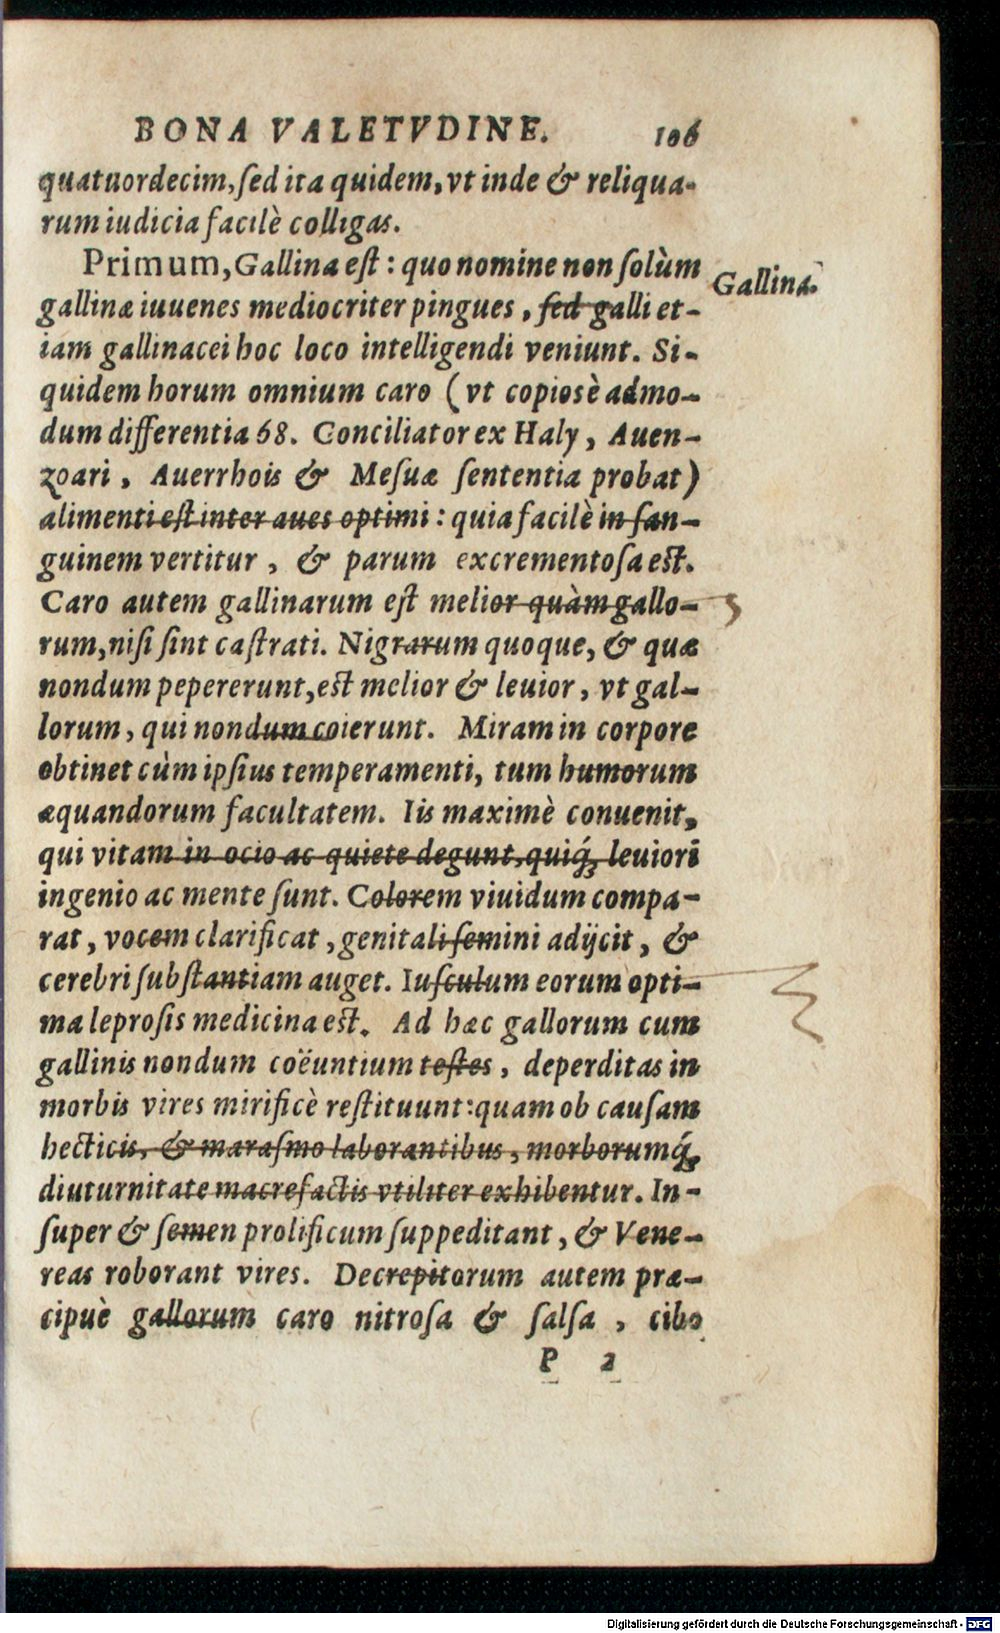 BONA VALETVDINE. 106
quatuordecim, ſed ita quidem, vt inde & reliqua-
rum iudicia facilè colligas.
Primum, Gallina eſt: quo nomine non ſolùm
Gallina.
gallinæ iuuenes mediocriter pingues, ſed galli et-
iam gallinacei hoc loco intelligendi veniunt. Si-
quidem horum omnium caro (vt copiosè admo-
dum differentia 68. Conciliator ex Haly, Auen-
zoari, Auerrhois & Meſuæ ſententia probat)
alimenti eſt inter aues optimi: quia facilè in ſan-
guinem vertitur, & parum excrementoſa eſt.
Caro autem gallinarum eſt melior quàm gallo-
rum, niſi ſint caſtrati. Nigrarum quoque, & quæ
nondum pepererunt, eſt melior & leuior, vt gal-
lorum, qui nondum coierunt. Miram in corpore
obtinet cùm ipſius temperamenti, tum humorum
æquandorum facultatem. Iis maximè conuenit,
qui vitam in ocio ac quiete degunt, quiq́; leuiori
ingenio ac mente ſunt. Colorem viuidum compa-
rat, vocem clarificat, genitali ſemini adijcit, &
cerebri ſubſtantiam auget. Iuſculum eorum opti-
ma leproſis medicina eſt. Ad hæc gallorum cum
gallinis nondum coëuntium teſtes, deperditas in
morbis vires mirificè reſtituunt: quam ob cauſam
hecticis, & maraſmo laborantibus, morborumq́;
diuturnitate macrefactis vtiliter exhibentur. In-
ſuper & ſemen prolificum ſuppeditant, & Vene-
reas roborant vires. Decrepitorum autem præ-
cipuè gallorum caro nitroſa & ſalſa, cibo
P 2
Digitalisierung gefördert durch die Deutsche Forschungsgemeinschaft - DFG